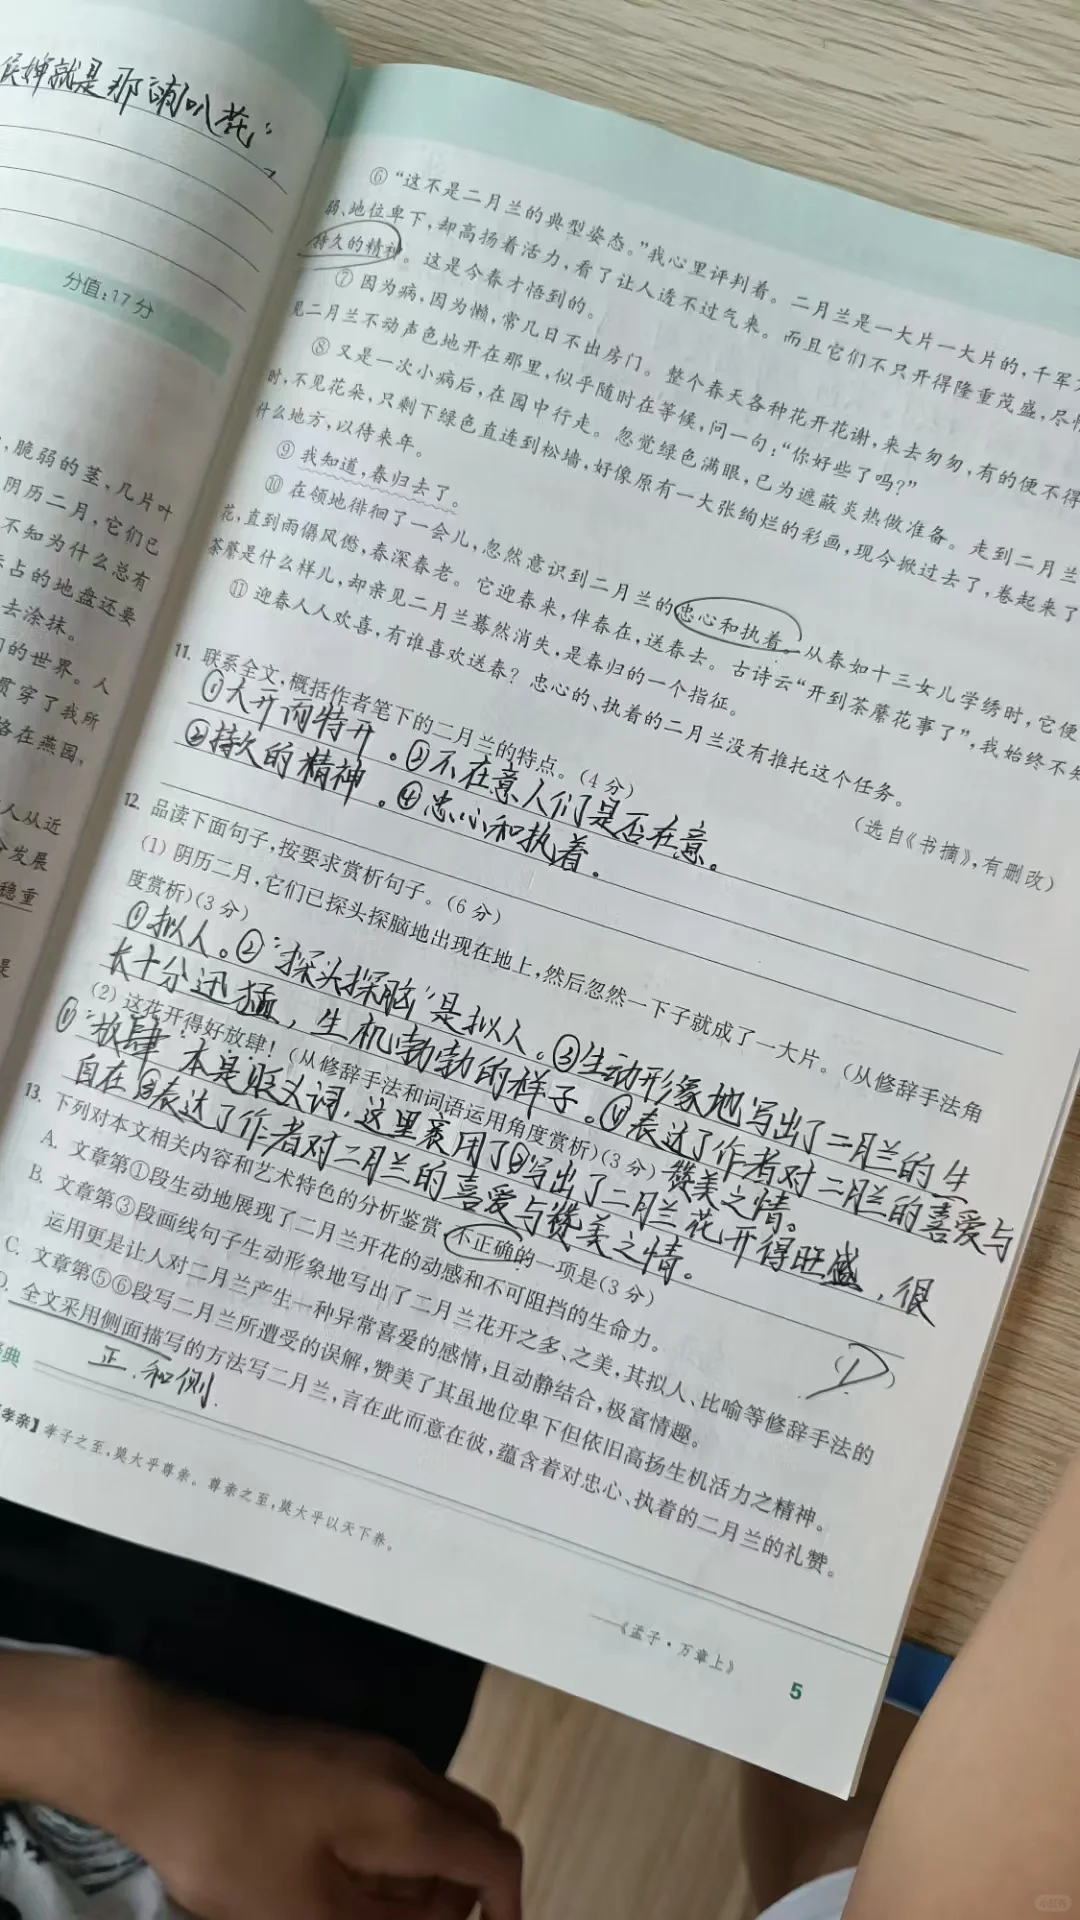 侯婶就是那"喇叭花"
分值：17分
，脆弱的茎，几片叶
阴历二月，它们已
不知为什么总有
占的地盘还要
去涂抹。
们的世界。人
贯穿了我所
落在燕园，
人从近
发展
稳重
是
⑥“这不是二月兰的典型姿态。”我心里评判着。二月兰是一大片一大片的，千军
弱、地位卑下，却高扬着活力，看了让人透不过气来。而且它们不只开得隆重茂盛，尽情
持久的精神。这是今春才悟到的。
⑦因为病，因为懒，常几日不出房门。整个春天各种花开花谢，来去匆匆，有的便不得
见二月兰不动声色地开在那里，似乎随时在等候，问一句：“你好些了吗？”
⑧又是一次小病后，在园中行走。忽觉绿色满眼，已为遮蔽炎热做准备。走到二月兰
时，不见花朵，只剩下绿色直连到松墙，好像原有一大张绚烂的彩画，现今掀过去了，卷起来了
什么地方，以待来年。
⑨我知道，春归去了。
⑩在领地徘徊了一会儿，忽然意识到二月兰的忠心和执着。从春如十三女儿学绣时，它便
花，直到雨僝风僽，春深春老。它迎春来，伴春在，送春去。古诗云“开到荼蘼花事了”，我始终不知
荼蘼是什么样儿，却亲见二月兰蓦然消失，是春归的一个指征。
⑪迎春人人欢喜，有谁喜欢送春？忠心的、执着的二月兰没有推托这个任务。
（选自《书摘》，有删改）
11. 联系全文，概括作者笔下的二月兰的特点。（4分）
①大开而特开。③不在意人们是否在意。
②持久的精神。④忠心和执着。
12. 品读下面句子，按要求赏析句子。（6分）
（1）阴历二月，它们已探头探脑地出现在地上，然后忽然一下子就成了一大片。（从修辞手法角
度赏析）（3分）
①拟人。②“探头探脑”是拟人。③生动形象地写出了二月兰的生
长十分迅猛，生机勃勃的样子。④表达了作者对二月兰的喜爱与
赞美之情。
（2）这花开得好放肆！（从修辞手法和词语运用角度赏析）（3分）
①“放肆”本是贬义词，这里褒用了②写出了二月兰花开得旺盛，很
自在③表达了作者对二月兰的喜爱与赞美之情。
13. 下列对本文相关内容和艺术特色的分析鉴赏不正确的一项是（3分）
（D）
A. 文章第①段生动地展现了二月兰开花的动感和不可阻挡的生命力。
B. 文章第③段画线句子生动形象地写出了二月兰花开之多、之美，其拟人、比喻等修辞手法的
运用更是让人对二月兰产生一种异常喜爱的感情，且动静结合，极富情趣。
C. 文章第⑤⑥段写二月兰所遭受的误解，赞美了其虽地位卑下但依旧高扬生机活力之精神。
D. 全文采用侧面描写的方法写二月兰，言在此而意在彼，蕴含着对忠心、执着的二月兰的礼赞。
正.和侧.
典
【孝亲】孝子之至，莫大乎尊亲。尊亲之至，莫大乎以天下养。
——《孟子·万章上》
5
小红书